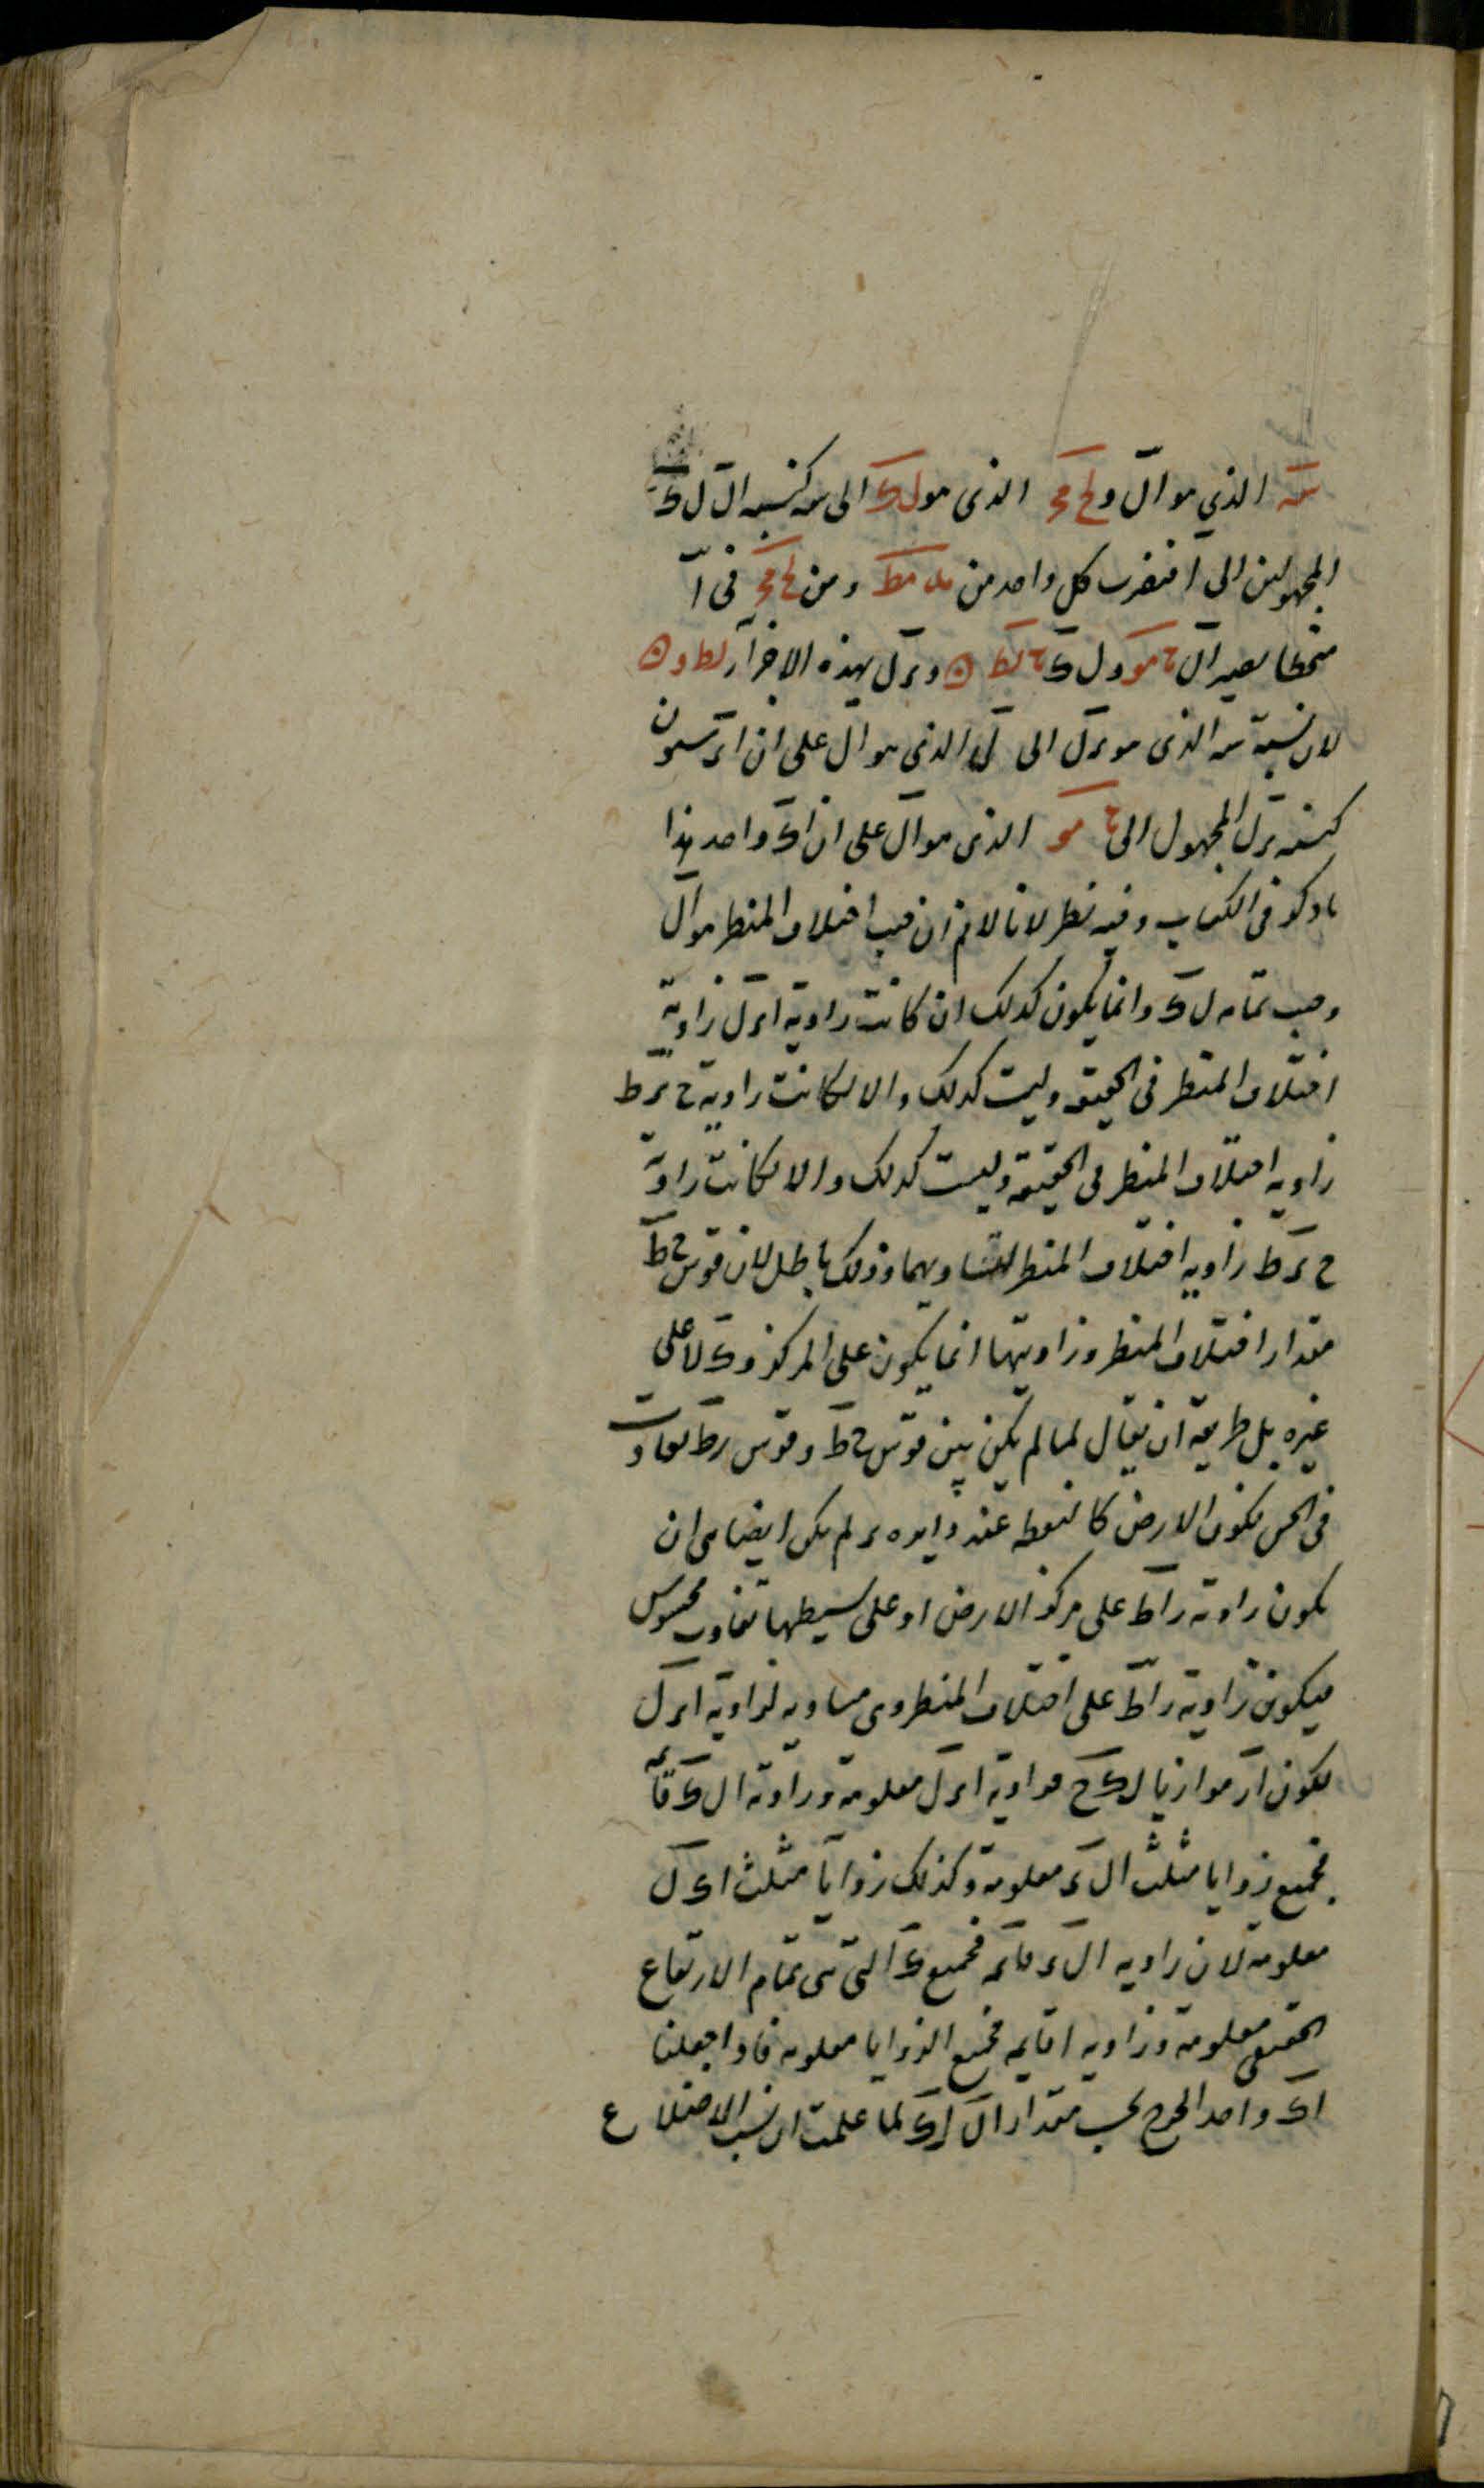 سه الذي هو ال و لح مح الذى هو ل ك الى سه كنسبة ال ل ك
المجهولين الى ا فنضرب كل واحد من مد مط ومن لح مح فى ا
منحطا يصير ال مو و ل ك لط و د ل بهذه الاجزاء لط و
لان نسبة سه الذى هو د ل الى ل ا الذى هو ال على ان ا د ستون
كنسبة د ل المجهول الى مو الذى هو ال على ان اك واحد هذا
ما ذكر فى الكتاب وفيه نظر لانا لا نم ان جيب اختلاف المنظر هو ال
وجيب تمامه ل ك وانما يكون كذلك ان كانت زاوية ا د ل زاوية
اختلاف المنظر فى الحقيقة وليست كذلك والا لكانت زاوية ح د ط
زاوية اختلاف المنظر فى الحقيقة وليست كذلك والا لكانت زاوية
ح د ط زاوية اختلاف المنظر لتساويهما وذلك باطل لان قوس ح ط
مقدار اختلاف المنظر وزاويتها انما يكون على المركز و ك لا على
غيره بل طريقه ان يقال لما لم يكن بين قوس ح ط وقوس ر ط تفاوت
فى الحس لكون الارض كالنقطة عند دايره د لم يكن ايضا بين ان
يكون زاوية ر ا ط على مركز الارض او على بسيطها تفاوت محسوس
فيكون زاوية ر ا ط على اختلاف المنظر وهى مساوية لزاوية ا د ل
لكون ا ر موازيا ل ك ح فزاوية ا د ل معلومة وزاوية ا ل ك قائمة
فجميع زوايا مثلث ا ل د معلومة وكذلك زوايا مثلث ا ك ل
معلومة لان زاوية ا ل د قائمة فجميع ك التى هى تمام الارتفاع
الحقيقى معلومة وزاوية ا قايمه فجميع الزوايا معلومه فاذا جعلنا
اك واحد الخرج بحسبه مقدار ال ل ك لما علمت ان نسب الاضلاع